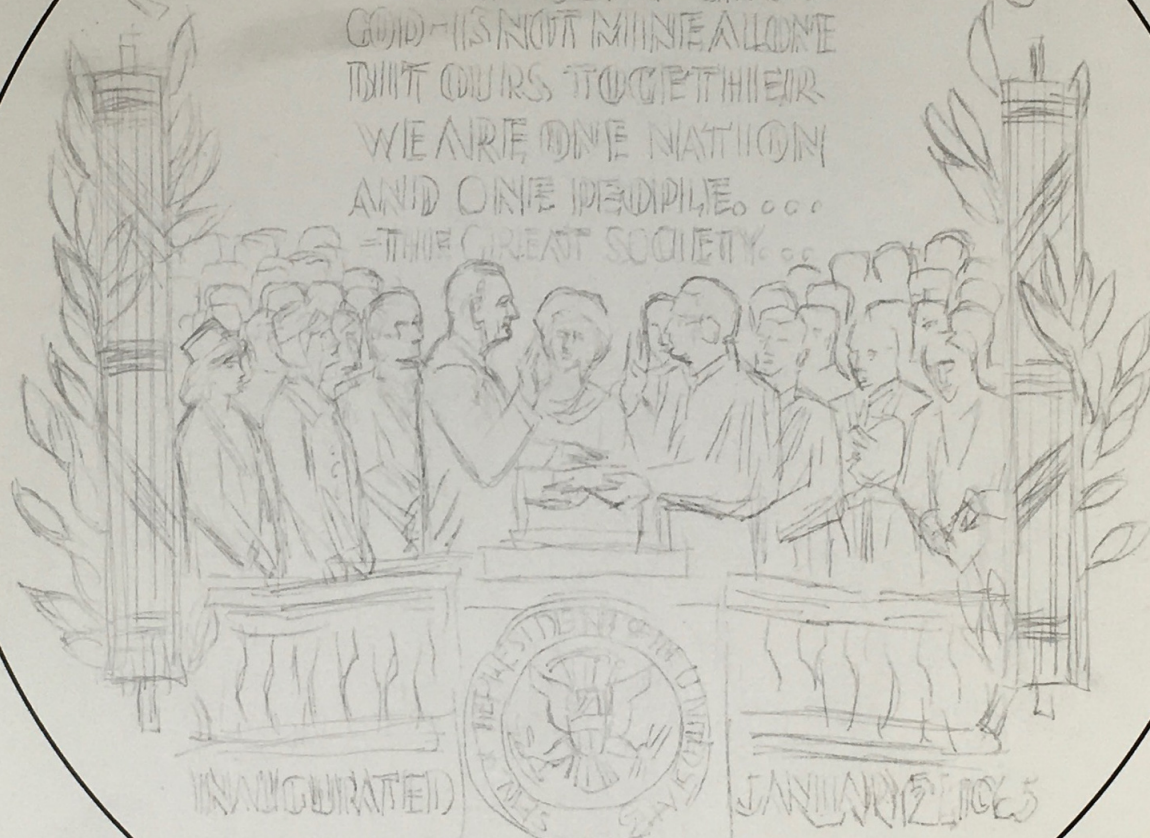 GOD-IS NOT MINE ALONE
BUT OURS TOGETHER
WE ARE ONE NATION
AND ONE PEOPLE....
-THE GREAT SOCIETY...
PRESIDENT OF THE UNITED STATES
INAUGURATED JANUARY 20 1965